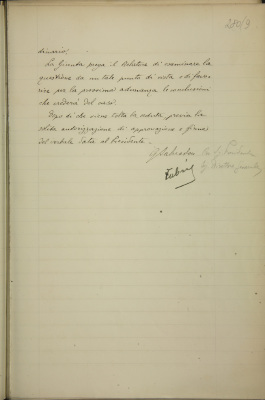 dinario.
La Giunta prega il Relatore di esaminare la
questione da un tale punto di vista e di
per la prossima adunanza le conclusioni
che crederà del caso.
Dopo di che viene tolta la seduta previa la
solita autorizzazione di approvazione e firma
del verbale data al Presidente.